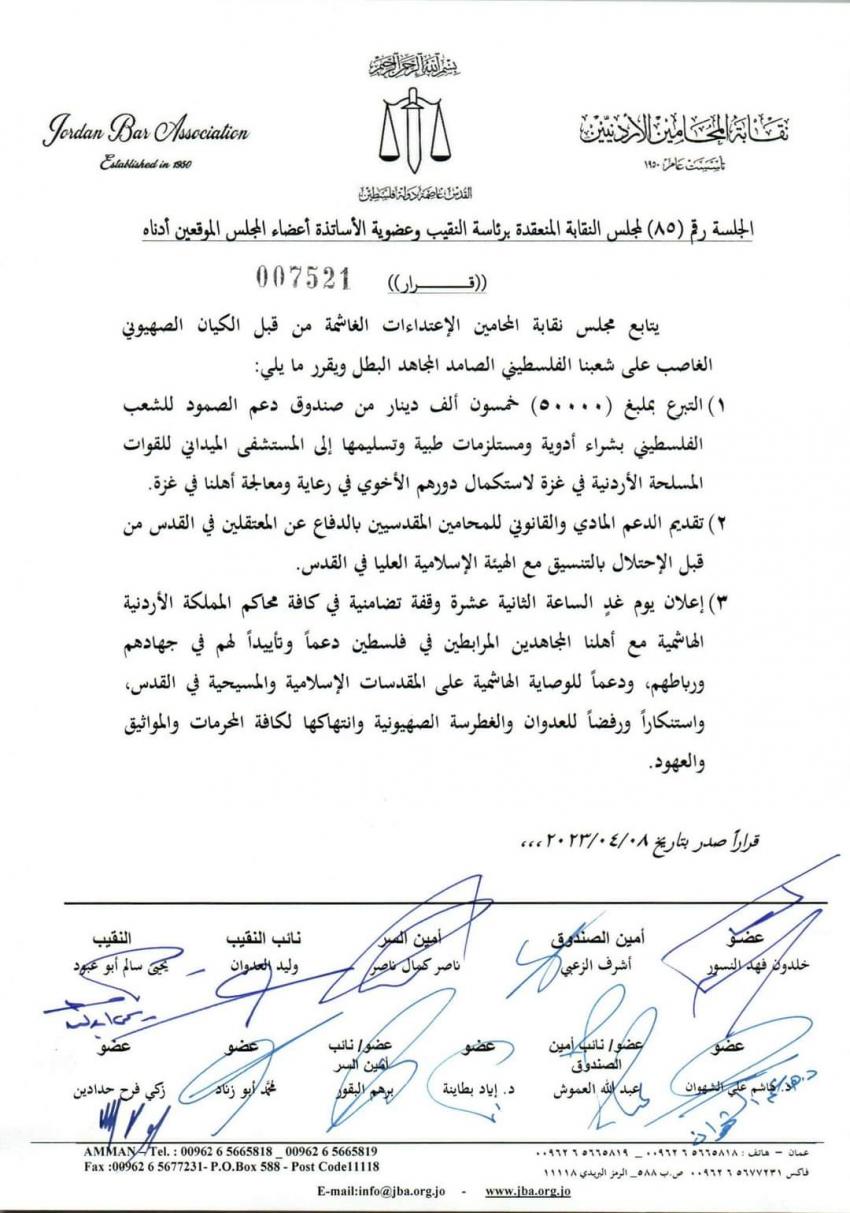 بسم الله الرحمن الرحيم
Jordan Bar Association
Established in 1950
نقابة المحامين الأردنيين
تأسست عام ١٩٥٠
القدس عاصمة دولة فلسطين
الجلسة رقم (٨٥) لمجلس النقابة المنعقدة برئاسة النقيب وعضوية الأساتذة أعضاء المجلس الموقعين أدناه
((قـــــــرار)) 007521
يتابع مجلس نقابة المحامين الإعتداءات الغاشمة من قبل الكيان الصهيوني
الغاصب على شعبنا الفلسطيني الصامد المجاهد البطل ويقرر ما يلي:
١) التبرع بملبغ (٥٠٠٠٠) خمسون ألف دينار من صندوق دعم الصمود للشعب
الفلسطيني بشراء أدوية ومستلزمات طبية وتسليمها إلى المستشفى الميداني للقوات
المسلحة الأردنية في غزة لاستكمال دورهم الأخوي في رعاية ومعالجة أهلنا في غزة.
٢) تقديم الدعم المادي والقانوني للمحامين المقدسيين بالدفاع عن المعتقلين في القدس من
قبل الإحتلال بالتنسيق مع الهيئة الإسلامية العليا في القدس.
٣) إعلان يوم غدٍ الساعة الثانية عشرة وقفة تضامنية في كافة محاكم المملكة الأردنية
الهاشمية مع أهلنا المجاهدين المرابطين في فلسطين دعماً وتأييداً لهم في جهادهم
ورباطهم، ودعماً للوصاية الهاشمية على المقدسات الإسلامية والمسيحية في القدس،
واستنكاراً ورفضاً للعدوان والغطرسة الصهيونية وانتهاكها لكافة المحرمات والمواثيق
والعهود.
قراراً صدر بتاريخ ٢٠٢٣/٠٤/٠٨،،،
عضو أمين الصندوق أمين السر نائب النقيب النقيب
خلدون فهد النسور أشرف الزعبي ناصر كمال ناصر وليد العدوان يحيى سالم أبو عبود
عضو عضو/ نائب أمين عضو عضو/ نائب عضو عضو
الصندوق أمين السر
د. هاشم علي الشهوان عبد الله العموش د. إياد بطاينة برهم البقور محمد أبو زناد زكي فرح حدادين
AMMAN – Tel. : 00962 6 5665818 _ 00962 6 5665819
Fax :00962 6 5677231- P.O.Box 588 - Post Code11118
عمان – هاتف : ٥٦٦٥٨١٨ ٦ ٠٠٩٦٢ _ ٥٦٦٥٨١٩ ٦ ٠٠٩٦٢
فاكس ٥٦٧٧٢٣١ ٦ ٠٠٩٦٢ ص.ب ٥٨٨_ الرمز البريدي ١١١١٨
E-mail:info@jba.org.jo - www.jba.org.jo